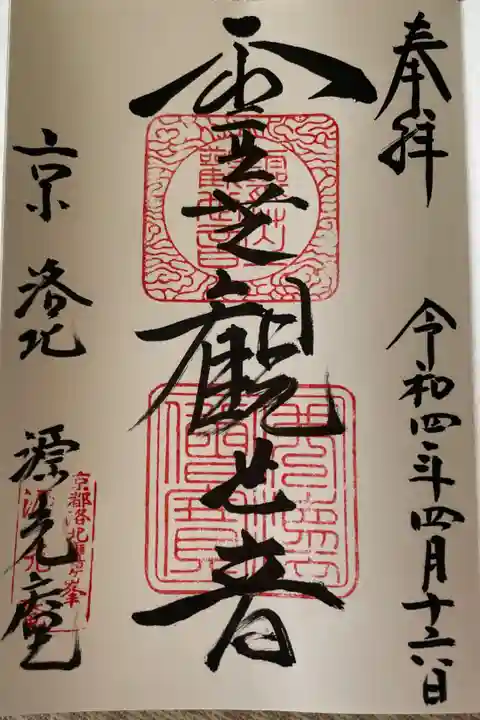 奉拝
令和四年四月十六日
霊芝観世音
京 洛北 源光庵
京都洛北鷹ヶ峯